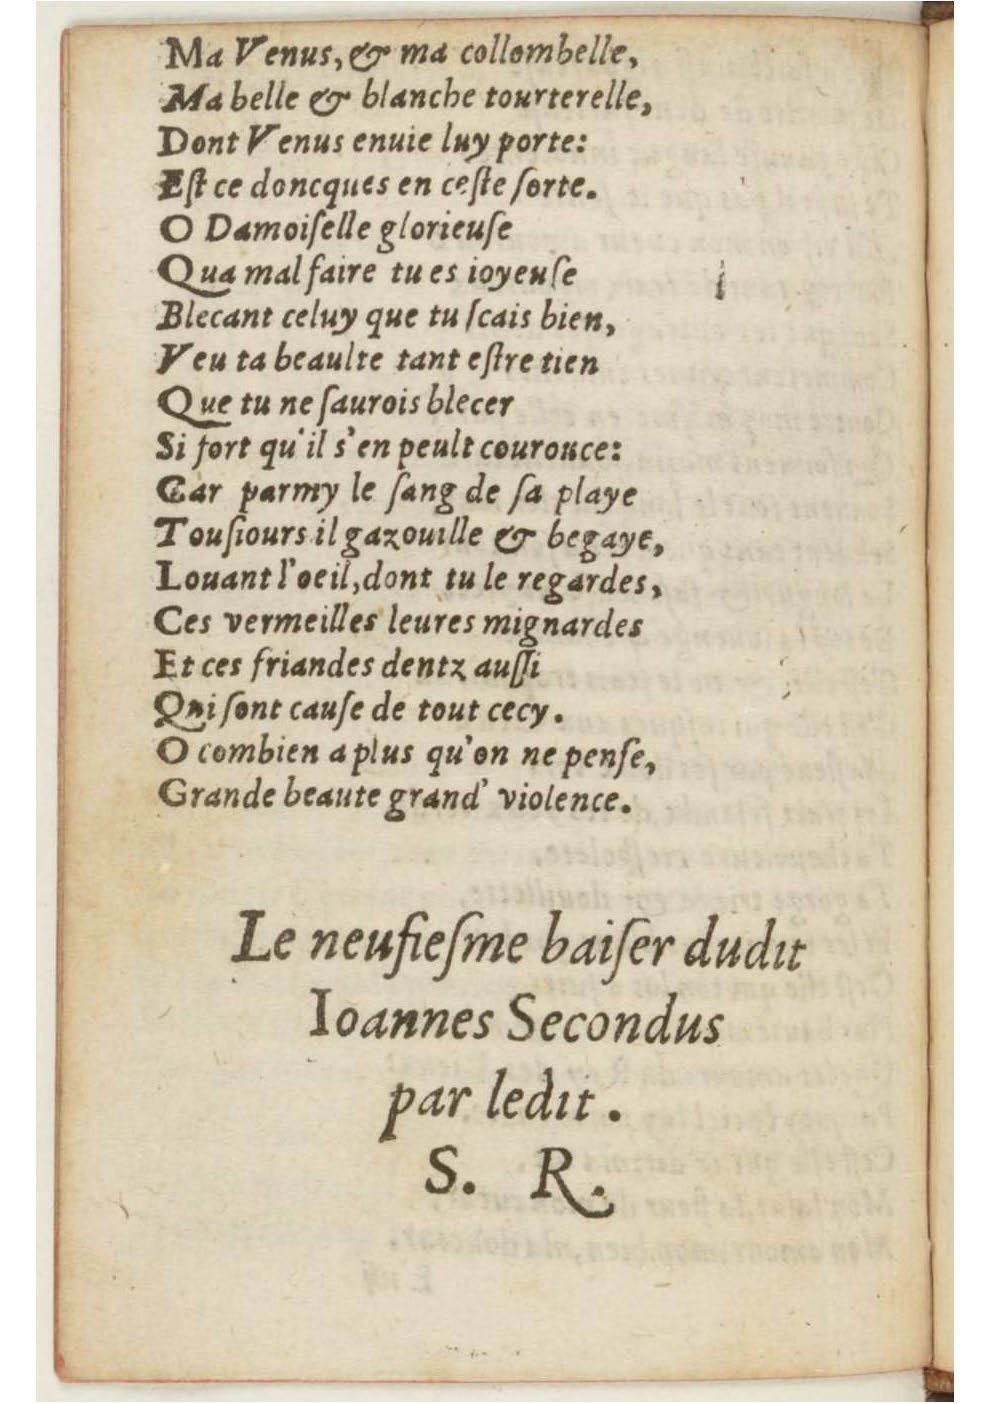 Ma Venus, & ma collombelle,
Ma belle & blanche tourterelle,
Dont Venus enuie luy porte:
Eſt ce doncques en ceſte ſorte.
O Damoiſelle glorieuſe
Qua mal faire tu es ioyeuſe
Blecant celuy que tu ſcais bien,
Veu ta beaulte tant eſtre tien
Que tu ne ſaurois blecer
Si fort qu'il s'en peult couroucer:
Car parmy le ſang de ſa playe
Touſiours il gazouille & begaye,
Louant l'oeil, dont tu le regardes,
Ces vermeilles leures mignardes
Et ces friandes dentz auſſi
Qui ſont cauſe de tout cecy.
O combien a plus qu'on ne penſe,
Grande beaute grand' violence.
Le neufieſme baiſer dudit
Ioannes Secondus
par ledit.
S. R.